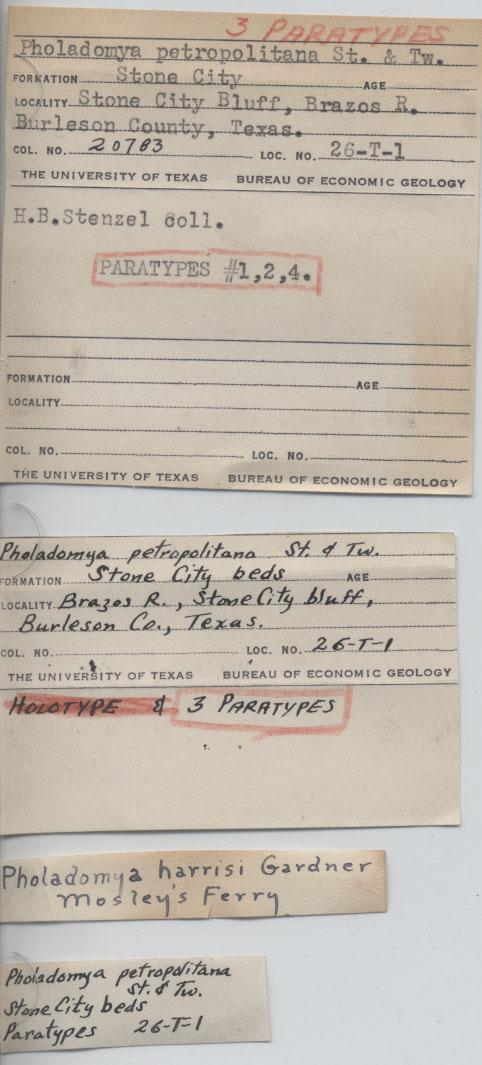 3 PARATYPES
Pholadomya petropolitana St. & Tw.
FORMATION Stone City AGE
LOCALITY Stone City Bluff, Brazos R.
Burleson County, Texas.
COL. NO. 20783 LOC. NO. 26-T-1
THE UNIVERSITY OF TEXAS BUREAU OF ECONOMIC GEOLOGY
H.B.Stenzel coll.
PARATYPES #1,2,4.
FORMATION AGE
LOCALITY
COL. NO. LOC. NO.
THE UNIVERSITY OF TEXAS BUREAU OF ECONOMIC GEOLOGY
Pholadomya petropolitana St. & Tw.
FORMATION Stone City beds AGE
LOCALITY Brazos R., Stone City bluff,
Burleson Co., Texas.
COL. NO. LOC. NO. 26-T-1
THE UNIVERSITY OF TEXAS BUREAU OF ECONOMIC GEOLOGY
HOLOTYPE & 3 PARATYPES
Pholadomya harrisi Gardner
Mosley's Ferry
Pholadomya petropolitana
St. & Tw.
Stone City beds
Paratypes 26-T-1